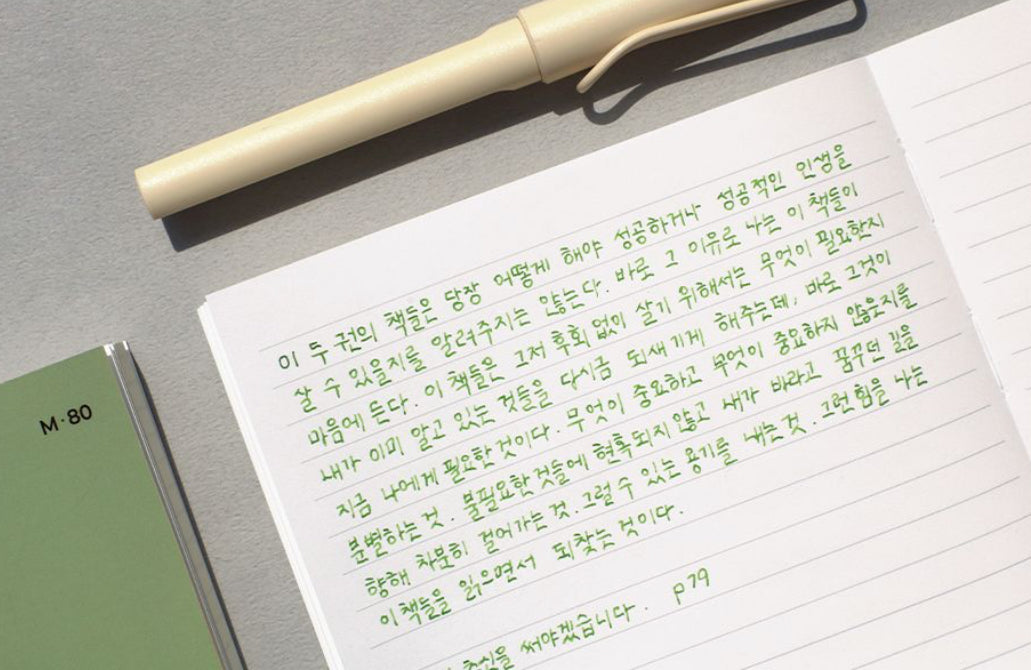 M·80
이 두 권의 책들은 당장 어떻게 해야 성공하거나 성공적인 인생을
살 수 있을지를 알려주지는 않는다. 바로 그 이유로 나는 이 책들이
마음에 든다. 이 책들은 그저 후회 없이 살기 위해서는 무엇이 필요한지
내가 이미 알고 있는 것들을 다시금 되새기게 해주는데, 바로 그것이
지금 나에게 필요한 것이다. 무엇이 중요하고 무엇이 중요하지 않은지를
분별하는 것. 불필요한 것들에 현혹되지 않고 내가 바라고 꿈꾸던 길을
향해 차분히 걸어가는 것. 그럴 수 있는 용기를 내는 것. 그런 힘을 나는
이 책들을 읽으면서 되찾는 것이다.
p79
써야겠습니다.